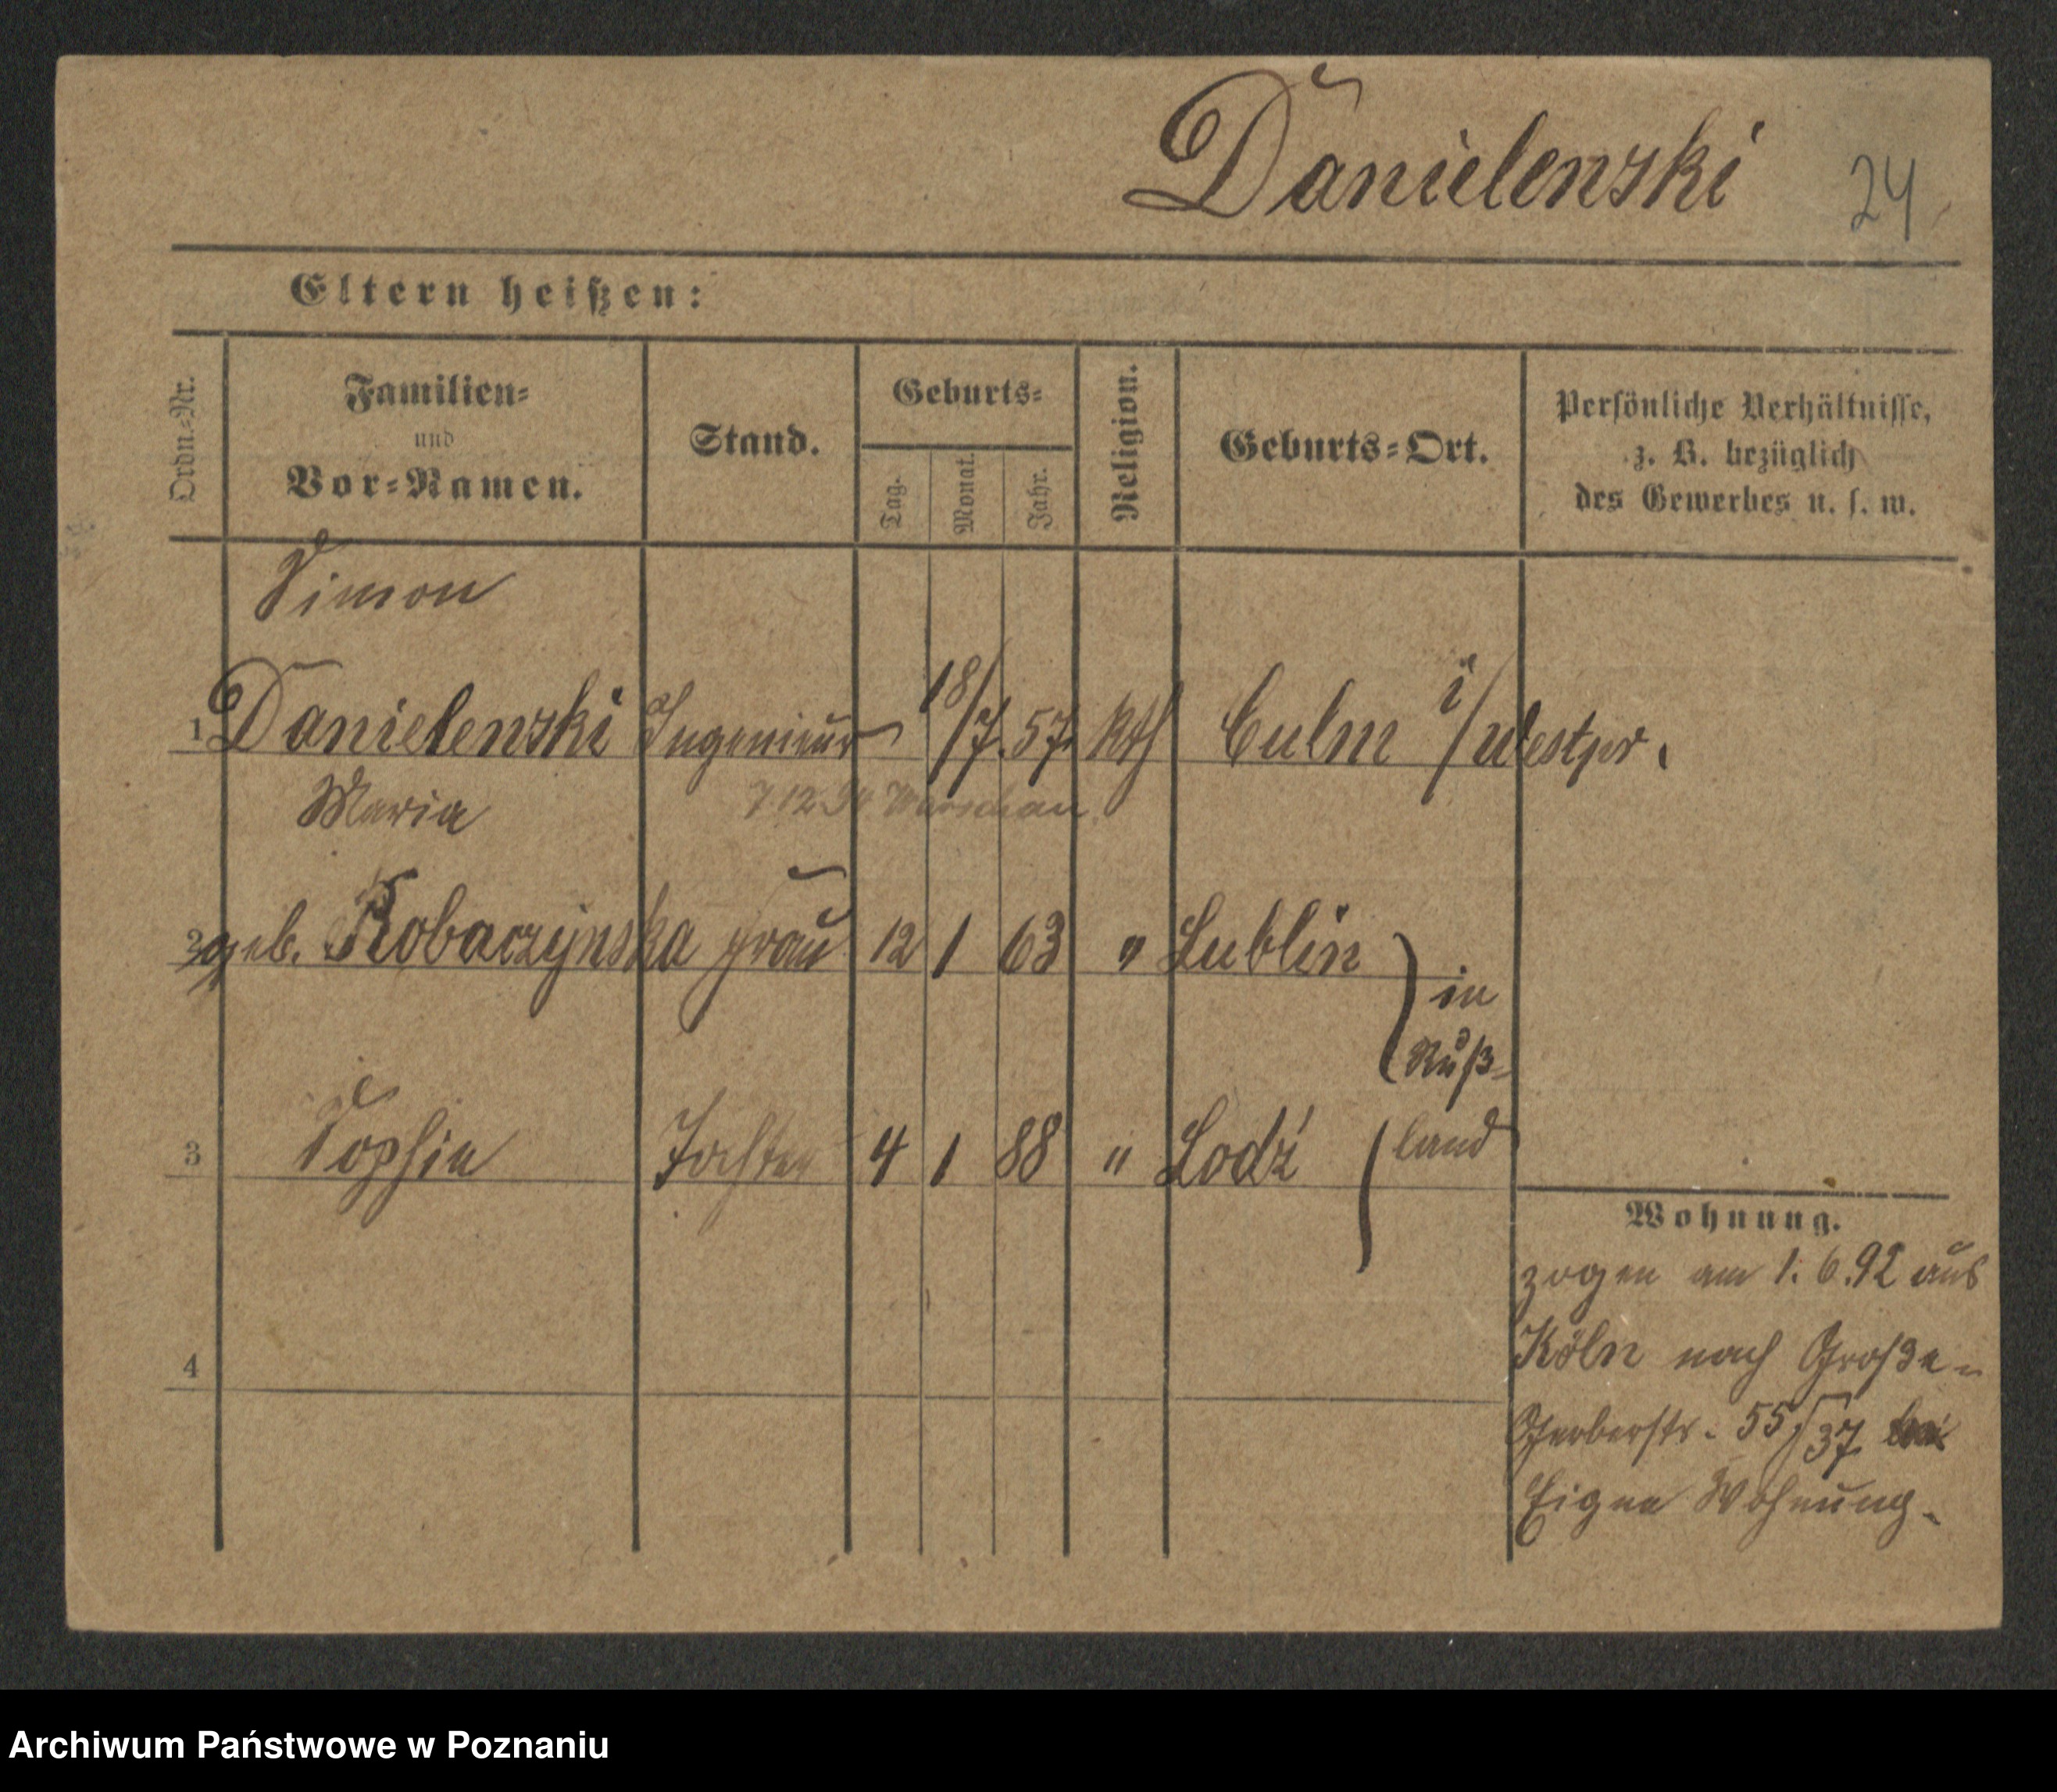 Danielenski 24
Eltern heißen:
Ordn.-Nr.
Familien-
und
Vor-Namen.
Stand.
Geburts-
Tag.
Monat.
Jahr.
Religion.
Geburts-Ort.
Persönliche Verhältnisse,
z. B. bezüglich
des Gewerbes u. s. w.
Simon
1 Danielenski Ingenieur 18/7. 57. kth Culm i/Westpr.
Maria
7 12 Warschau
2 geb. Robaczynska Frau 12 1 63 " Lublin
in
Ruß-
3 Sophie Tochter 4 1 88 " Lodź land
4
Wohnung.
zogen am 1. 6. 92 aus
Köln nach Große-
Gerberstr. 55/37
Eigne Wohnung.
Archiwum Państwowe w Poznaniu